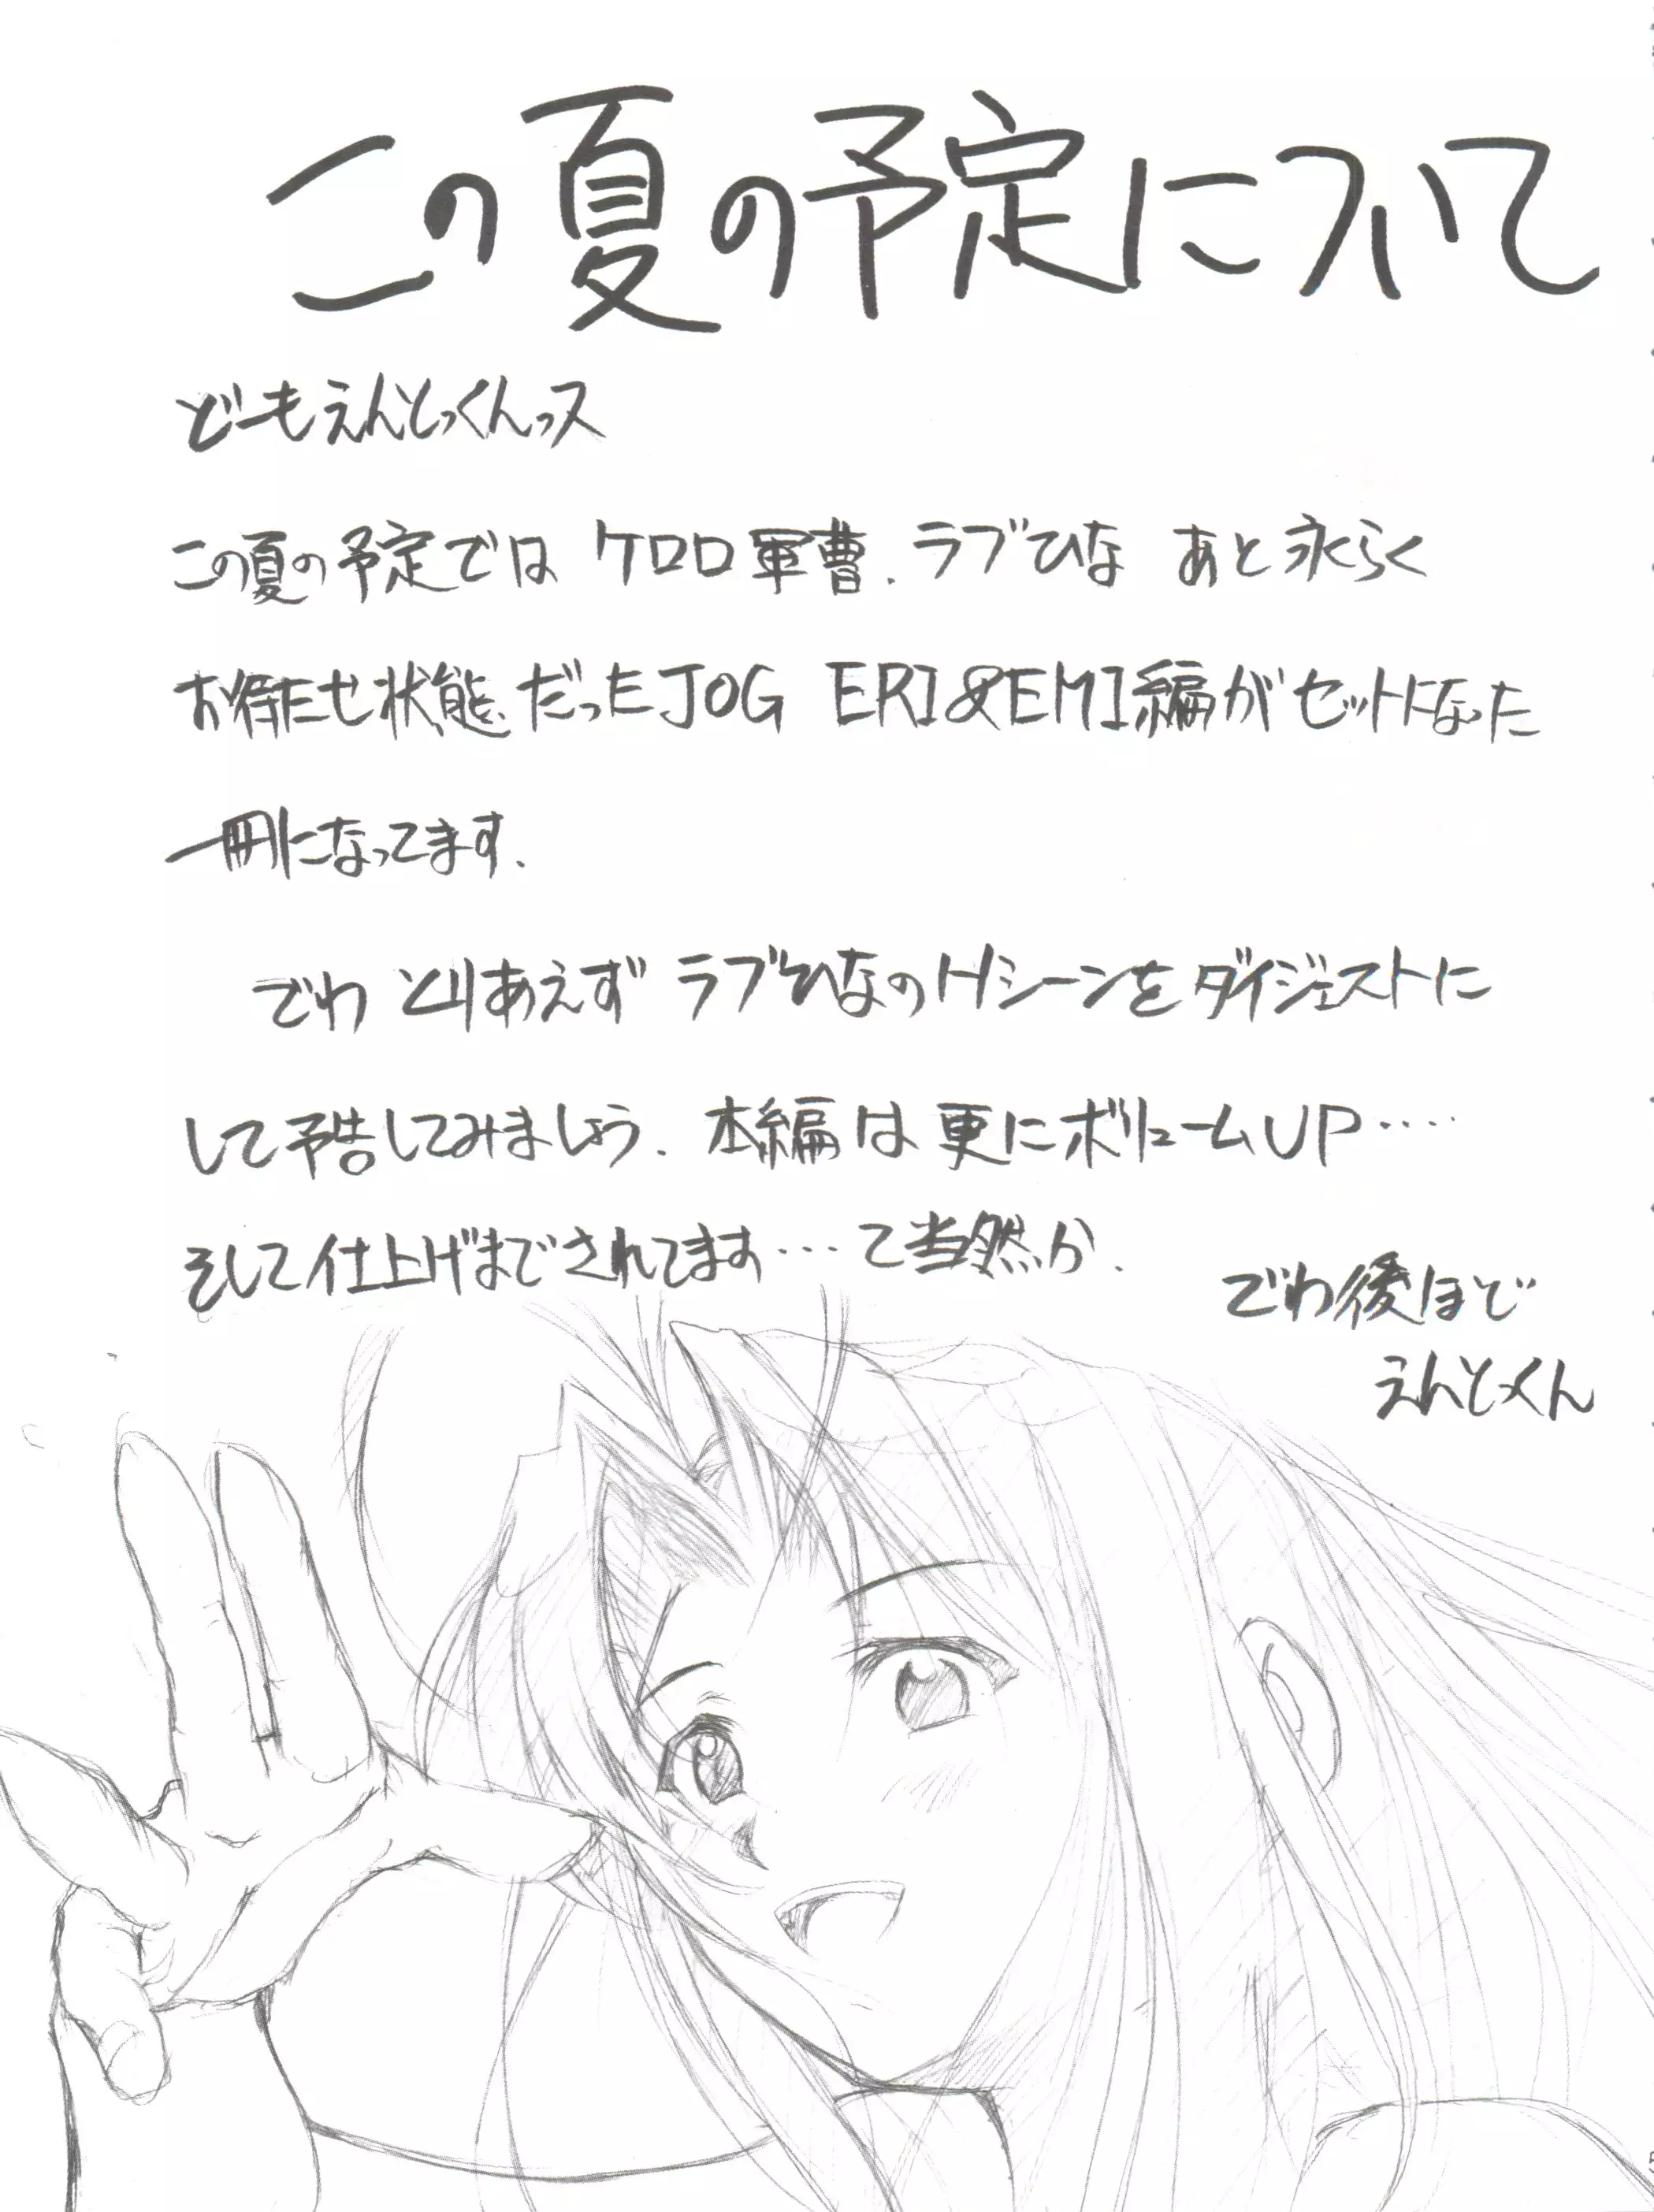 この夏の予定について
どーもえんとっくんっス
この夏の予定では ケロロ軍曹、ラブひな あと永らく
お待たせ状態だったJOG ERI&EMI編がセットになった
一冊になってます.
でわ とりあえず ラブひなのHシーンをダイジェストに
して予告してみましょう. 本編は更にボリュームUP‥‥
そして仕上げまでされてます‥‥て当然か.
でわ後ほど
えんとっくん
5